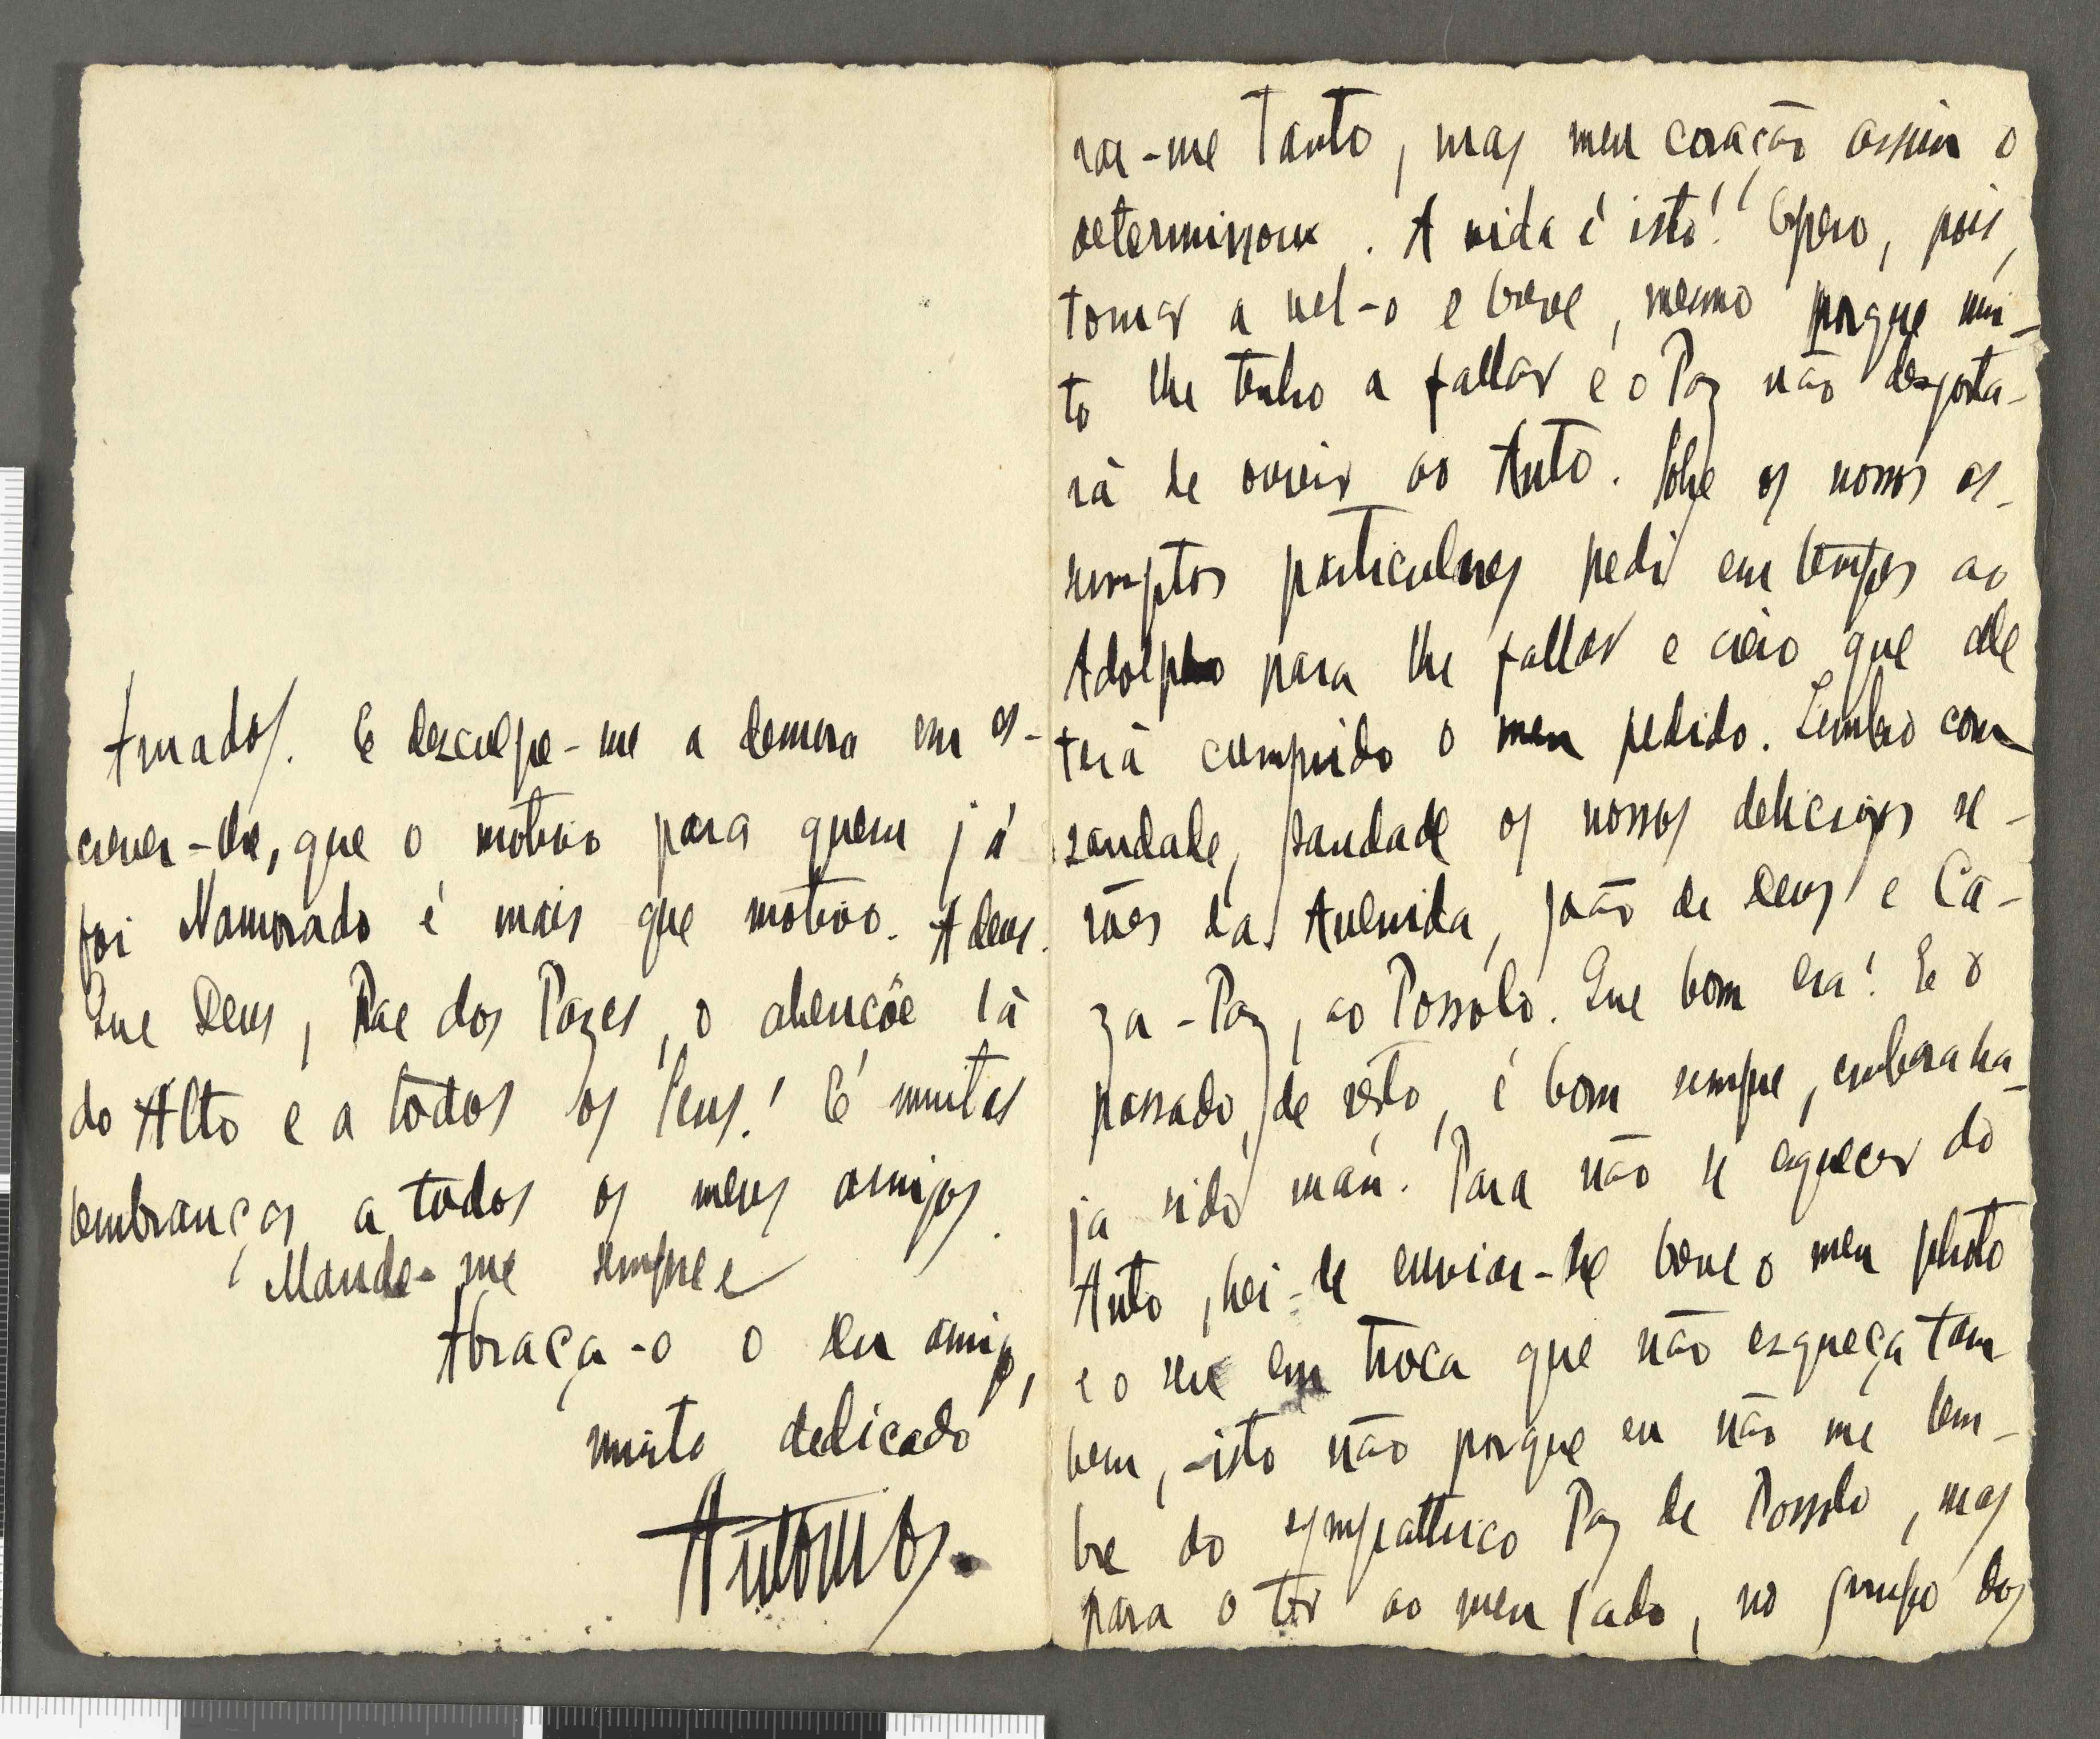 rar-me tanto, mas meu coração assim o
determinou. A vida é isto! Espero, pois,
tornar a vel-o e breve, mesmo porque mui-
to lhe tenho a fallar e o Paz não desgosta-
rá de ouvir ao Anto. Sobre os nossos as-
sumptos particulares pedi em tempos ao
Adolpho para lhe fallar e creio que elle
terá cumprido o meu pedido. Lembro com
saudade, saudade os nossos deliciosos se-
rões da Avenida, João de Deus e Ca-
za-Paz, ao Possolo. Que bom era! E o
passado, de resto, é bom sempre, embora ha-
ja sido máu. Para não se esquecer do
Anto, hei-de enviar-lhe breve o meu photo
e o seu em troca que não esqueça tam
bem, -isto não porque eu não me lem-
bre do sympathico Paz de Possolo, mas
para o ter ao meu lado, no grupo dos
Amados. E desculpe-me a demora em es-
crever-lhe, que o motivo para quem já
foi Namorado é mais que motivo. Adeus.
Que Deus, Pae dos Pazes, o abençôe lá
do Alto e a todos os Seus! E muitas
lembranças a todos os meus amigos.
Mande-me sempre e
Abraça-o o seu amigo,
muito dedicado
Antonio.